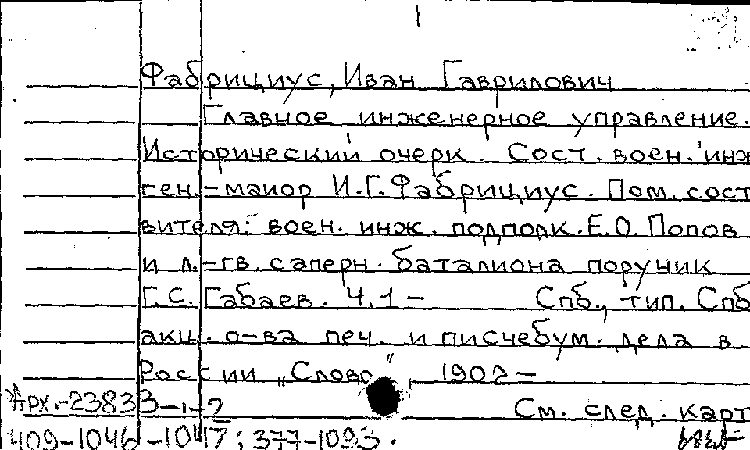 1
Фабрициус, Иван Гаврилович
Главное инженерное управление.
Исторический очерк. Сост. воен. инж
ген.-маиор И.Г. Фабрициус. Пом. сост
вителя: воен. инж. подполк. Е.О. Попов
и л.-гв. саперн. баталиона поручик
Г.С. Габаев. Ч.1- Спб., тип. Спб
акц. о-ва печ. и писчебум. дела в
России „Слово", 1902-
Арх.-23833-1-2 См. след. карт
409-1046-1047; 377-1093.